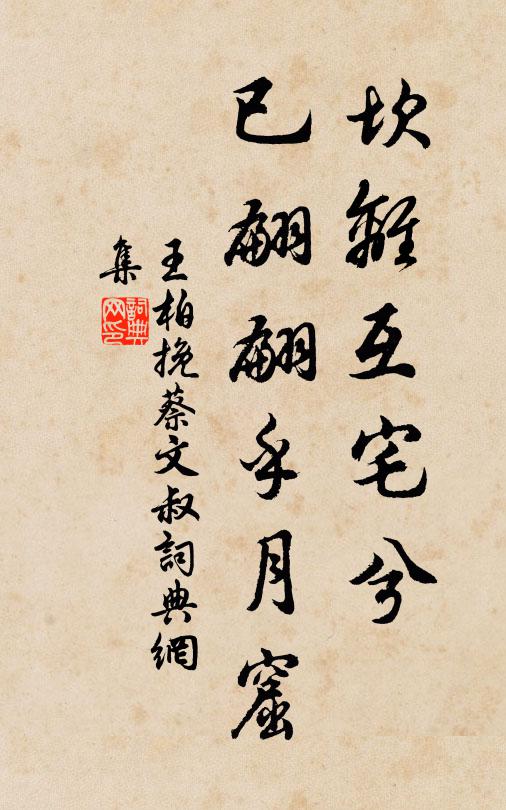 坎離互宅兮
已翩翩乎月窟
王柏挽蔡文叔詞典網
集
詞典网印